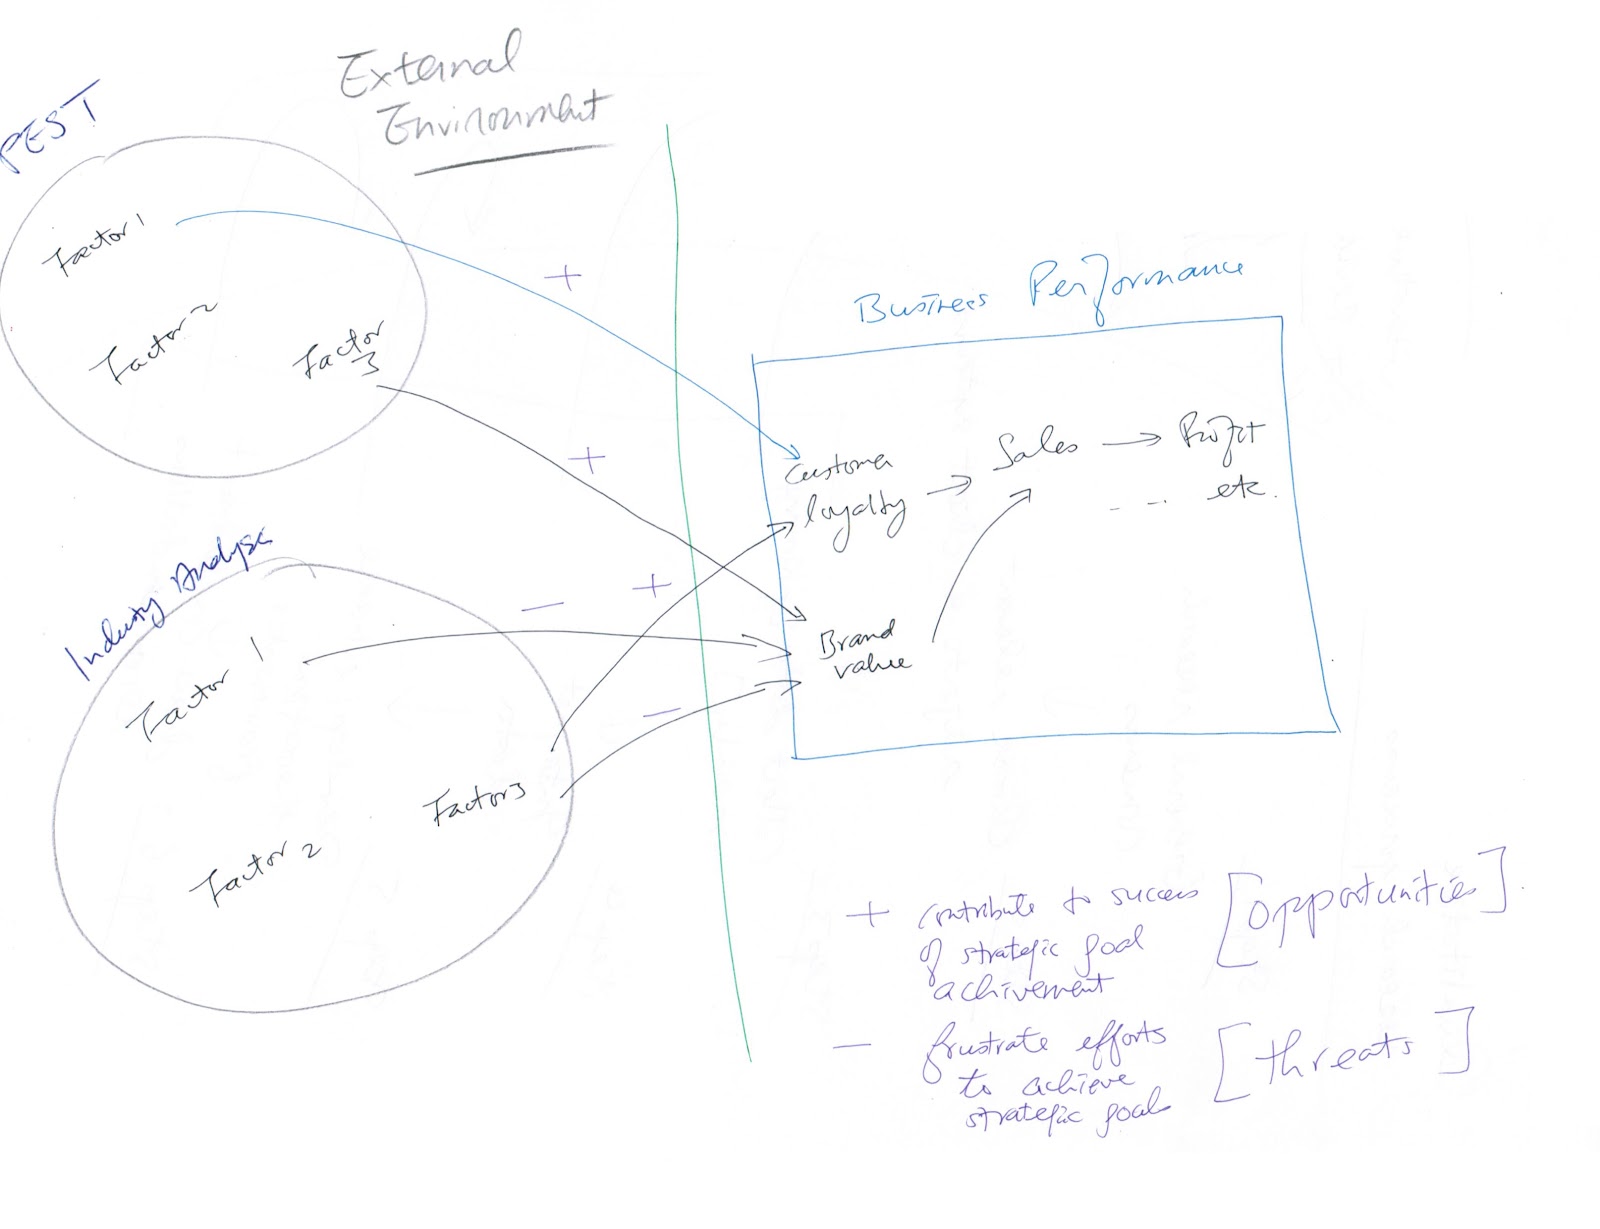 External
Environment
PEST
Factor 1
Factor 2
Factor
3
+
+
Industry Analysis
Factor 1
Factor 3
Factor 2
−
+
−
Business Performance
Customer
loyalty → Sales → Profit
- -- etc.
Brand
value
+ contribute to success [opportunities].
of strategic goal
achivement
− frustrate efforts [threats]
to achieve
strategic goals